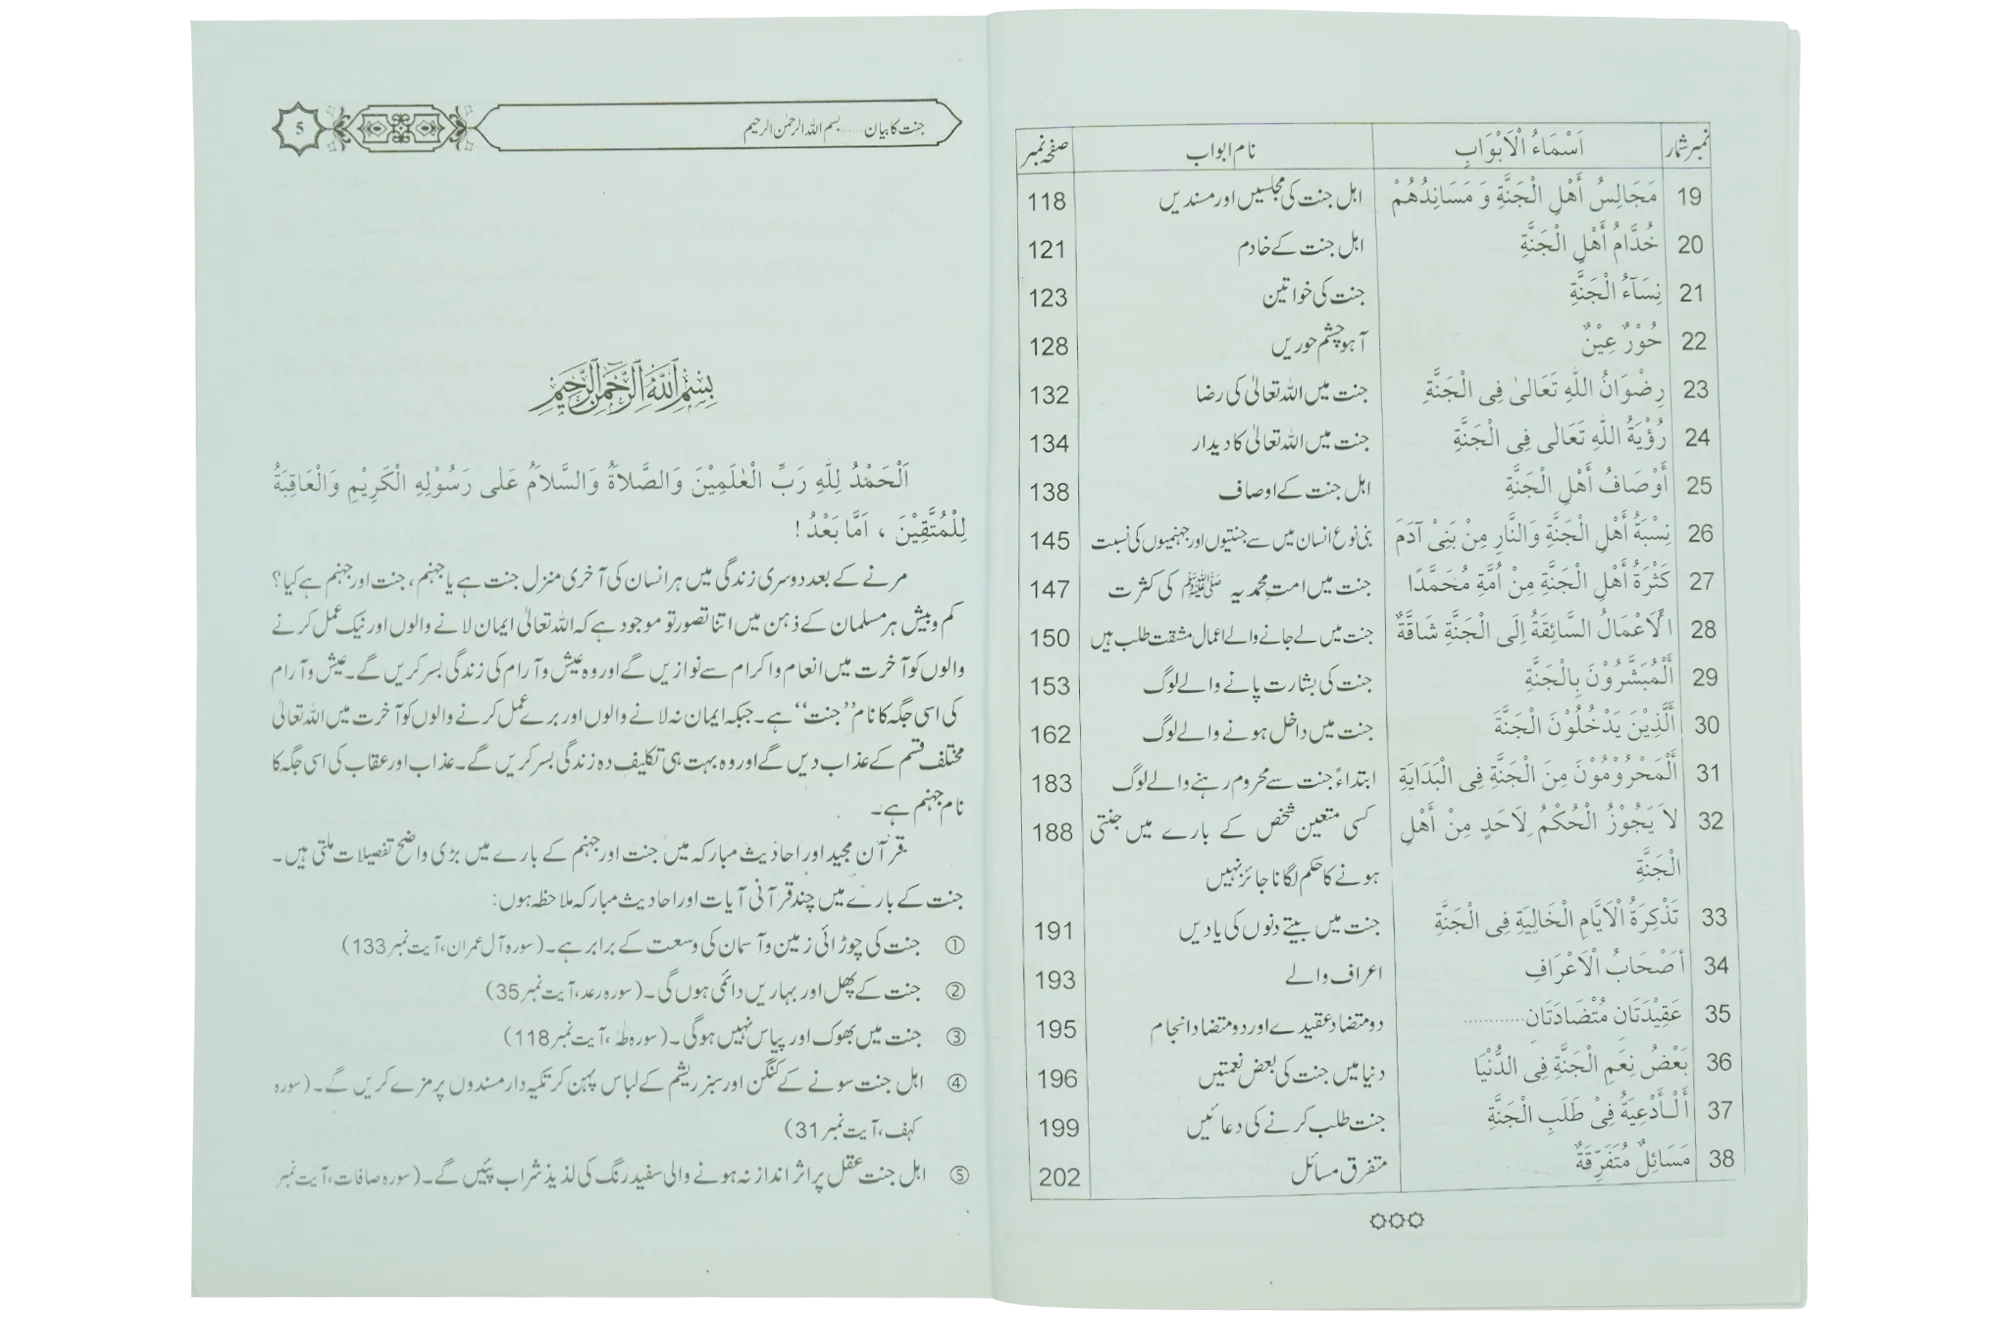 نمبر شمار اَسْمَاءُ الْاَبْوَابِ نام ابواب صفحہ نمبر
19 مَجَالِسُ أَهْلِ الْجَنَّةِ وَ مَسَانِدُهُمْ اہل جنت کی مجلسیں اور مسندیں 118
20 خُدَّامُ أَهْلِ الْجَنَّةِ اہل جنت کے خادم 121
21 نِسَآءُ الْجَنَّةِ جنت کی خواتین 123
22 حُوْرٌ عِيْنٌ آہو چشم حوریں 128
23 رِضْوَانُ اللّٰهِ تَعَالىٰ فِى الْجَنَّةِ جنت میں اللہ تعالیٰ کی رضا 132
24 رُؤْيَةُ اللّٰهِ تَعَالٰى فِى الْجَنَّةِ جنت میں اللہ تعالیٰ کا دیدار 134
25 أَوْصَافُ أَهْلِ الْجَنَّةِ اہل جنت کے اوصاف 138
26 نِسْبَةُ أَهْلِ الْجَنَّةِ وَالنَّارِ مِنْ بَنِىْ آدَمَ بنی نوع انسان میں سے جنتیوں اور جہنمیوں کی نسبت 145
27 كَثْرَةُ أَهْلِ الْجَنَّةِ مِنْ اُمَّةِ مُحَمَّدًا جنت میں امت محمدیہ ﷺ کی کثرت 147
28 اَلْاَعْمَالُ السَّائِقَةُ اِلَى الْجَنَّةِ شَاقَّةٌ جنت میں لے جانے والے اعمال مشقت طلب ہیں 150
29 أَلْمُبَشَّرُوْنَ بِالْجَنَّةِ جنت کی بشارت پانے والے لوگ 153
30 أَلَّذِيْنَ يَدْخُلُوْنَ الْجَنَّةَ جنت میں داخل ہونے والے لوگ 162
31 أَلْمَحْرُوْمُوْنَ مِنَ الْجَنَّةِ فِى الْبَدَايَةِ ابتداءً جنت سے محروم رہنے والے لوگ 183
32 لاَ يَجُوْزُ الْحُكْمُ لِاَحَدٍ مِنْ أَهْلِ کسی متعین شخص کے بارے میں جنتی 188
الْجَنَّةِ ہونے کا حکم لگانا جائز نہیں
33 تَذْكِرَةُ الْاَيَّامِ الْخَالِيَةِ فِى الْجَنَّةِ جنت میں بیتے دنوں کی یادیں 191
34 أَصْحَابُ الْاَعْرَافِ اعراف والے 193
35 عَقِيْدَتَانِ مُتَّضَادَتَانِ............ دو متضاد عقیدے اور دو متضاد انجام 195
36 بَعْضُ نِعَمِ الْجَنَّةِ فِى الدُّنْيَا دنیا میں جنت کی بعض نعمتیں 196
37 أَلْـأَدْعِيَةُ فِىْ طَلَبِ الْجَنَّةِ جنت طلب کرنے کی دعائیں 199
38 مَسَائِلٌ مُتَفَرِّقَةٌ متفرق مسائل 202
جنت کا بیان......بسم اللہ الرحمٰن الرحیم 5
بِسْمِ اللّٰهِ الرَّحْمٰنِ الرَّحِيْمِ
اَلْحَمْدُ لِلّٰهِ رَبِّ الْعٰلَمِيْنَ وَالصَّلاَةُ وَالسَّلاَمُ عَلٰى رَسُوْلِهِ الْكَرِيْمِ وَالْعَاقِبَةُ
لِلْمُتَّقِيْنَ ، اَمَّا بَعْدُ !
مرنے کے بعد دوسری زندگی میں ہر انسان کی آخری منزل جنت ہے یا جہنم، جنت اور جہنم ہے کیا؟
کم و بیش ہر مسلمان کے ذہن میں اتنا تصور تو موجود ہے کہ اللہ تعالیٰ ایمان لانے والوں اور نیک عمل کرنے
والوں کو آخرت میں انعام و اکرام سے نوازیں گے اور وہ عیش و آرام کی زندگی بسر کریں گے۔ عیش و آرام
کی اسی جگہ کا نام ’’جنت‘‘ ہے۔ جبکہ ایمان نہ لانے والوں اور برے عمل کرنے والوں کو آخرت میں اللہ تعالیٰ
مختلف قسم کے عذاب دیں گے اور وہ بہت ہی تکلیف دہ زندگی بسر کریں گے۔ عذاب اور عقاب کی اسی جگہ کا
نام جہنم ہے۔
قرآن مجید اور احادیث مبارکہ میں جنت اور جہنم کے بارے میں بڑی واضح تفصیلات ملتی ہیں۔
جنت کے بارے میں چند قرآنی آیات اور احادیث مبارکہ ملاحظہ ہوں:
① جنت کی چوڑائی زمین و آسمان کی وسعت کے برابر ہے۔ (سورہ آل عمران، آیت نمبر 133)
② جنت کے پھل اور بہاریں دائمی ہوں گی۔ (سورہ رعد، آیت نمبر 35)
③ جنت میں بھوک اور پیاس نہیں ہوگی۔ (سورہ طٰہٰ، آیت نمبر 118)
④ اہل جنت سونے کے کنگن اور سبز ریشم کے لباس پہن کر تکیہ دار مسندوں پر مزے کریں گے۔ (سورہ
کہف، آیت نمبر 31)
⑤ اہل جنت عقل پر اثر انداز نہ ہونے والی سفید رنگ کی لذیذ شراب پئیں گے۔ (سورہ صافات، آیت نمبر